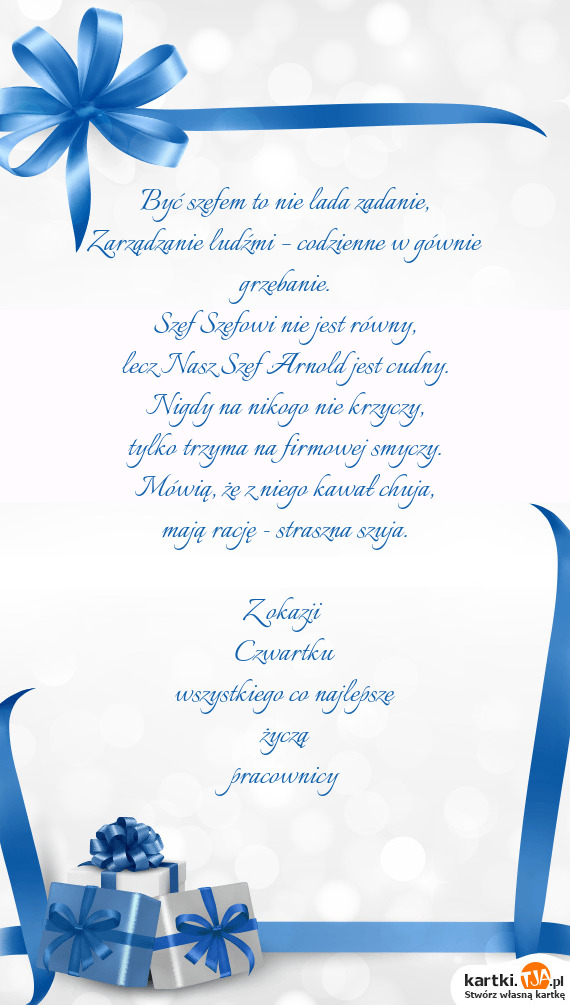 Być szefem to nie lada zadanie,
Zarządzanie ludźmi – codzienne w gównie
grzebanie.
Szef Szefowi nie jest równy,
lecz Nasz Szef Arnold jest cudny.
Nigdy na nikogo nie krzyczy,
tylko trzyma na firmowej smyczy.
Mówią, że z niego kawał chuja,
mają rację - straszna szuja.
Z okazji
Czwartku
wszystkiego co najlepsze
życzą
pracownicy
kartki.TJA.pl
Stwórz własną kartkę